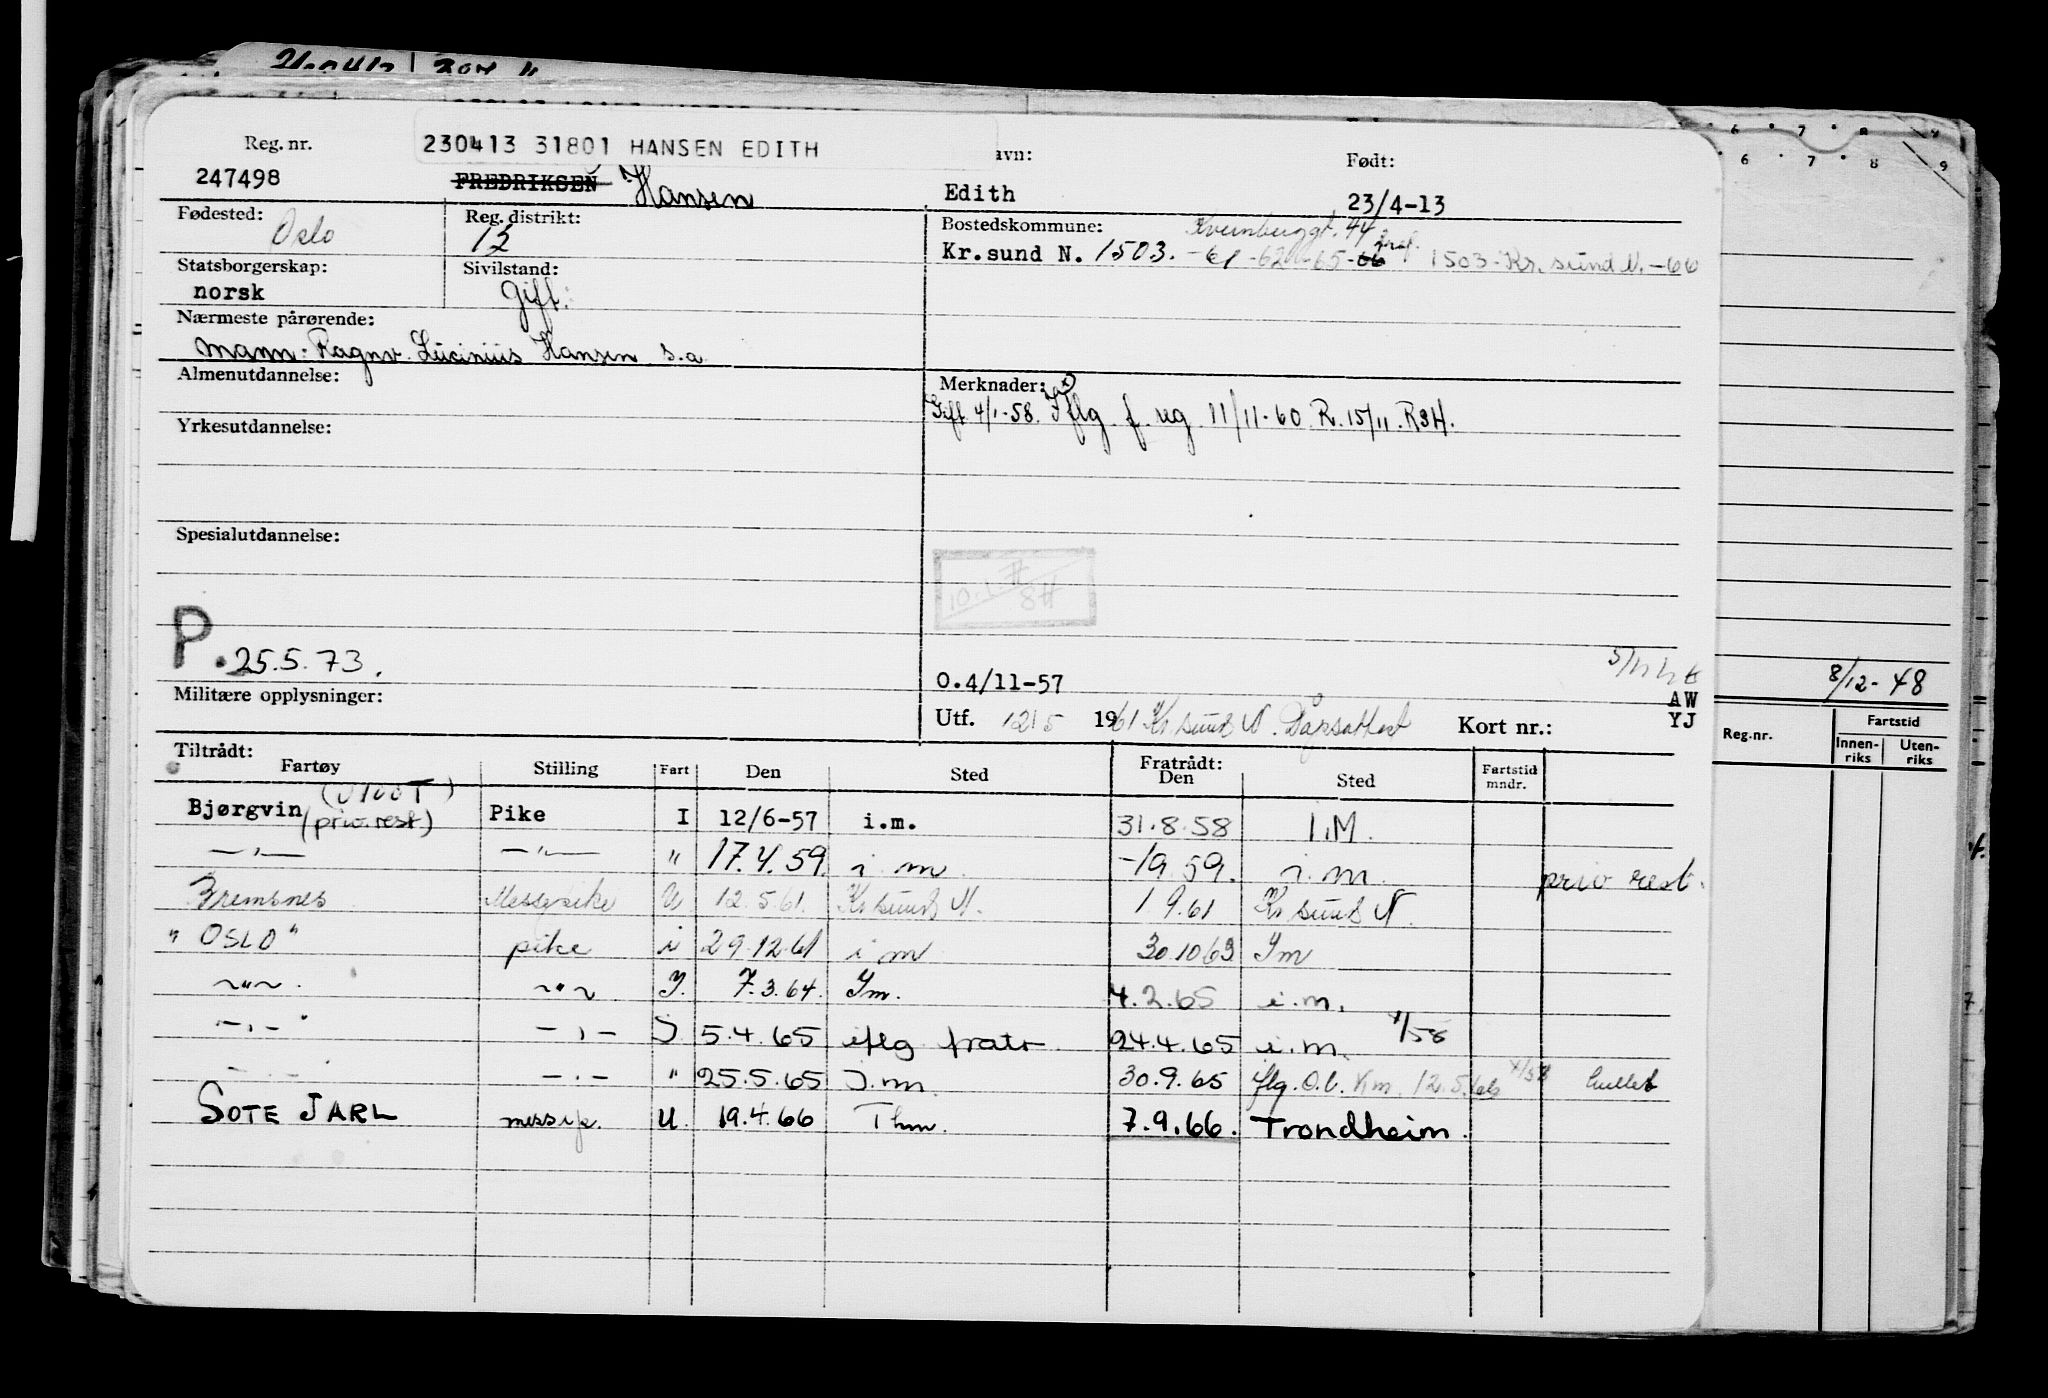 230413 31801 HANSEN EDITH
Reg. nr. avn: Født:
247498 FREDRIKSEN Hansen Edith 23/4-13
Fødested: Reg. distrikt: Bostedskommune: 44
Oslo 12 Kr.sund N. 1503. -61-62-65-66 1503-Kr.sund N.-66
Statsborgerskap: Sivilstand:
norsk Gift.
Nærmeste pårørende:
Mann: Ragnv. Lucinius Hansen s.a.
Almenutdannelse: Merknader:
Gift 4/1-58. Iflg. f. reg. 11/11-60 R. 15/11. RSH.
Yrkesutdannelse:
Spesialutdannelse:
P. 25.5.73.
O.4/11-57 AW
Militære opplysninger: Utf. 12/5 1961 Kr.sund N. Kort nr.: YJ
8/12-48
Reg.nr. Fartstid
Innen-riks Uten-riks
Tiltrådt: Fratrådt:
Fartøy Stilling Fart Den Sted Den Sted Fartstid mndr.
Bjørgvin (priv.rest) Pike I 12/6-57 i.m. 31.8.58 I.M.
—"— —"— " 17.4.59. i m -19.59. i.m. priv rest.
Bremsnes Messepike U 12.5.61. Kr sund N. 1.9.61 Kr sund N.
"OSLO" pike i 29.12.61 i m 30.10 63 Im
~"~. ~"~ I. 7.3.64. Im. 4.2.65 i.m.
-,- -,- I 5.4.65 iflg fratr 24.4.65 i.m. 1/58
-.- -.- " 25.5.65 I.m. 30.9.65 flg. O.b. Km. 12.5.
SOTE JARL messep. U. 19.4.66 Thm. 7.9.66. Trondheim.